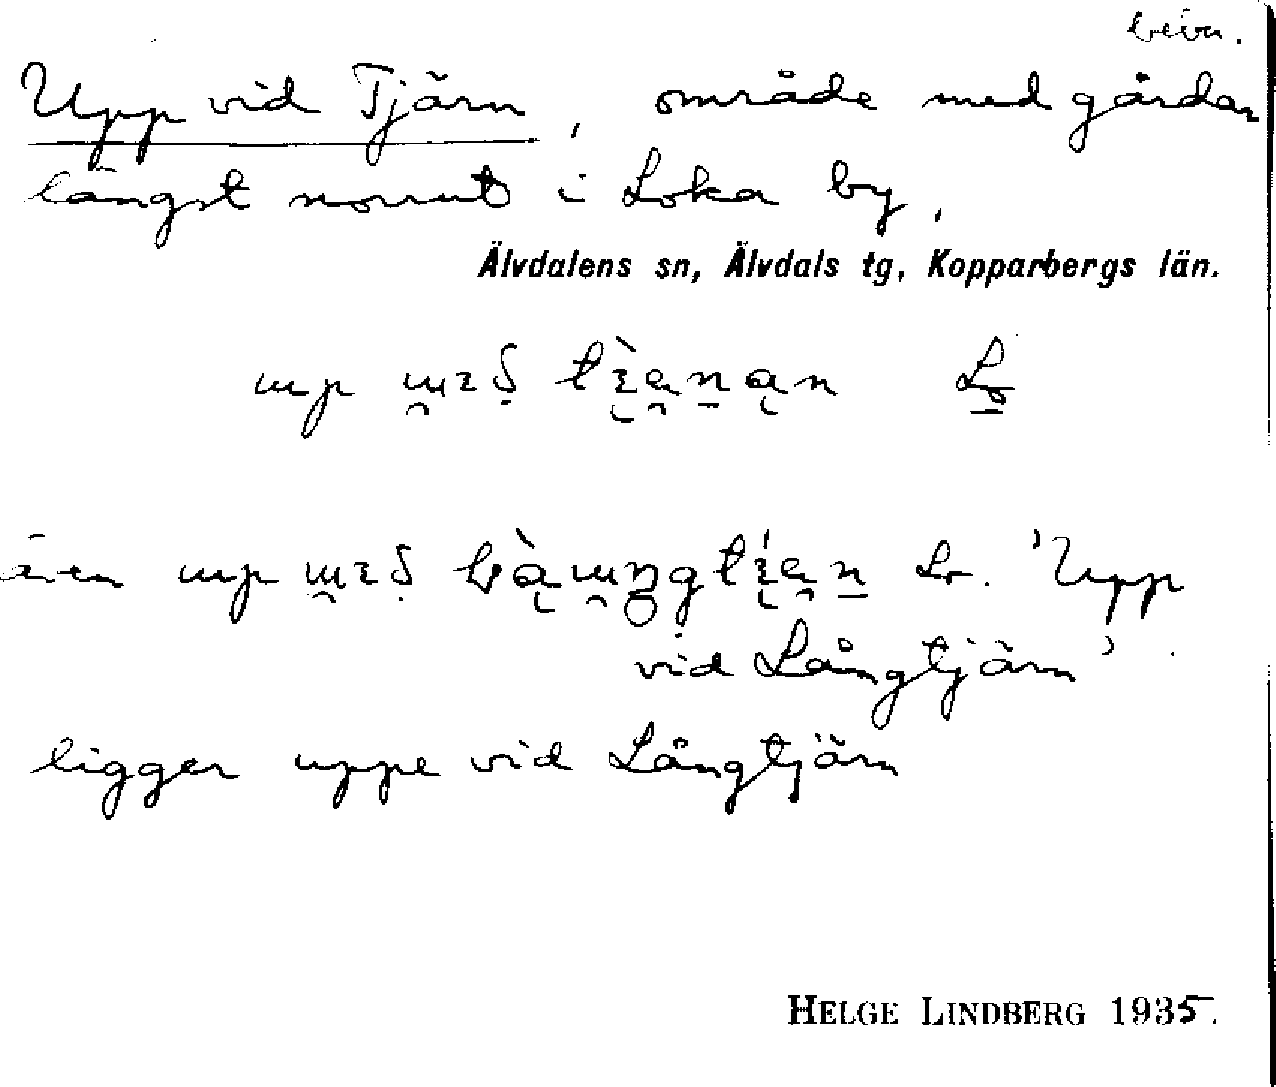 bebn.
Upp vid Tjärn, område med gårdar
längst norrut i Loka by.
Älvdalens sn, Älvdals tg, Kopparbergs län.
upp
Lo
även upp Lo. 'Upp
vid Långtjärn'
ligger uppe vid Långtjärn
HELGE LINDBERG 1935.